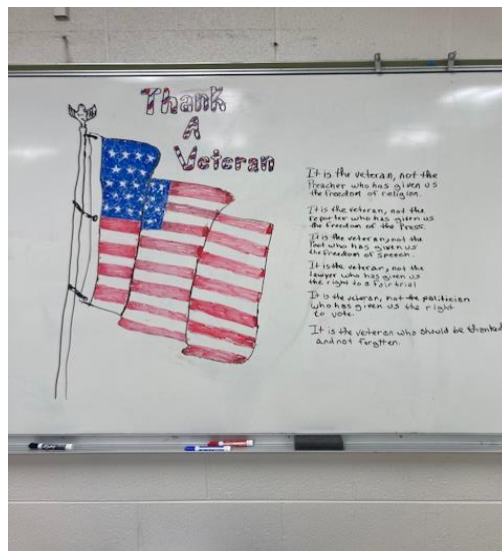 Thank
A
Veteran
It is the veteran, not the
Preacher who has given us
the freedom of religion.
It is the veteran, not the
reporter who has given us
the freedom of the Press.
It is the veteran, not the
Poet who has given us
the freedom of speech.
It is the veteran, not the
lawyer who has given us
the right to a fair trial
It is the veteran, not the politician
who has given us the right
to vote.
It is the veteran who should be thanked
and not forgtten.